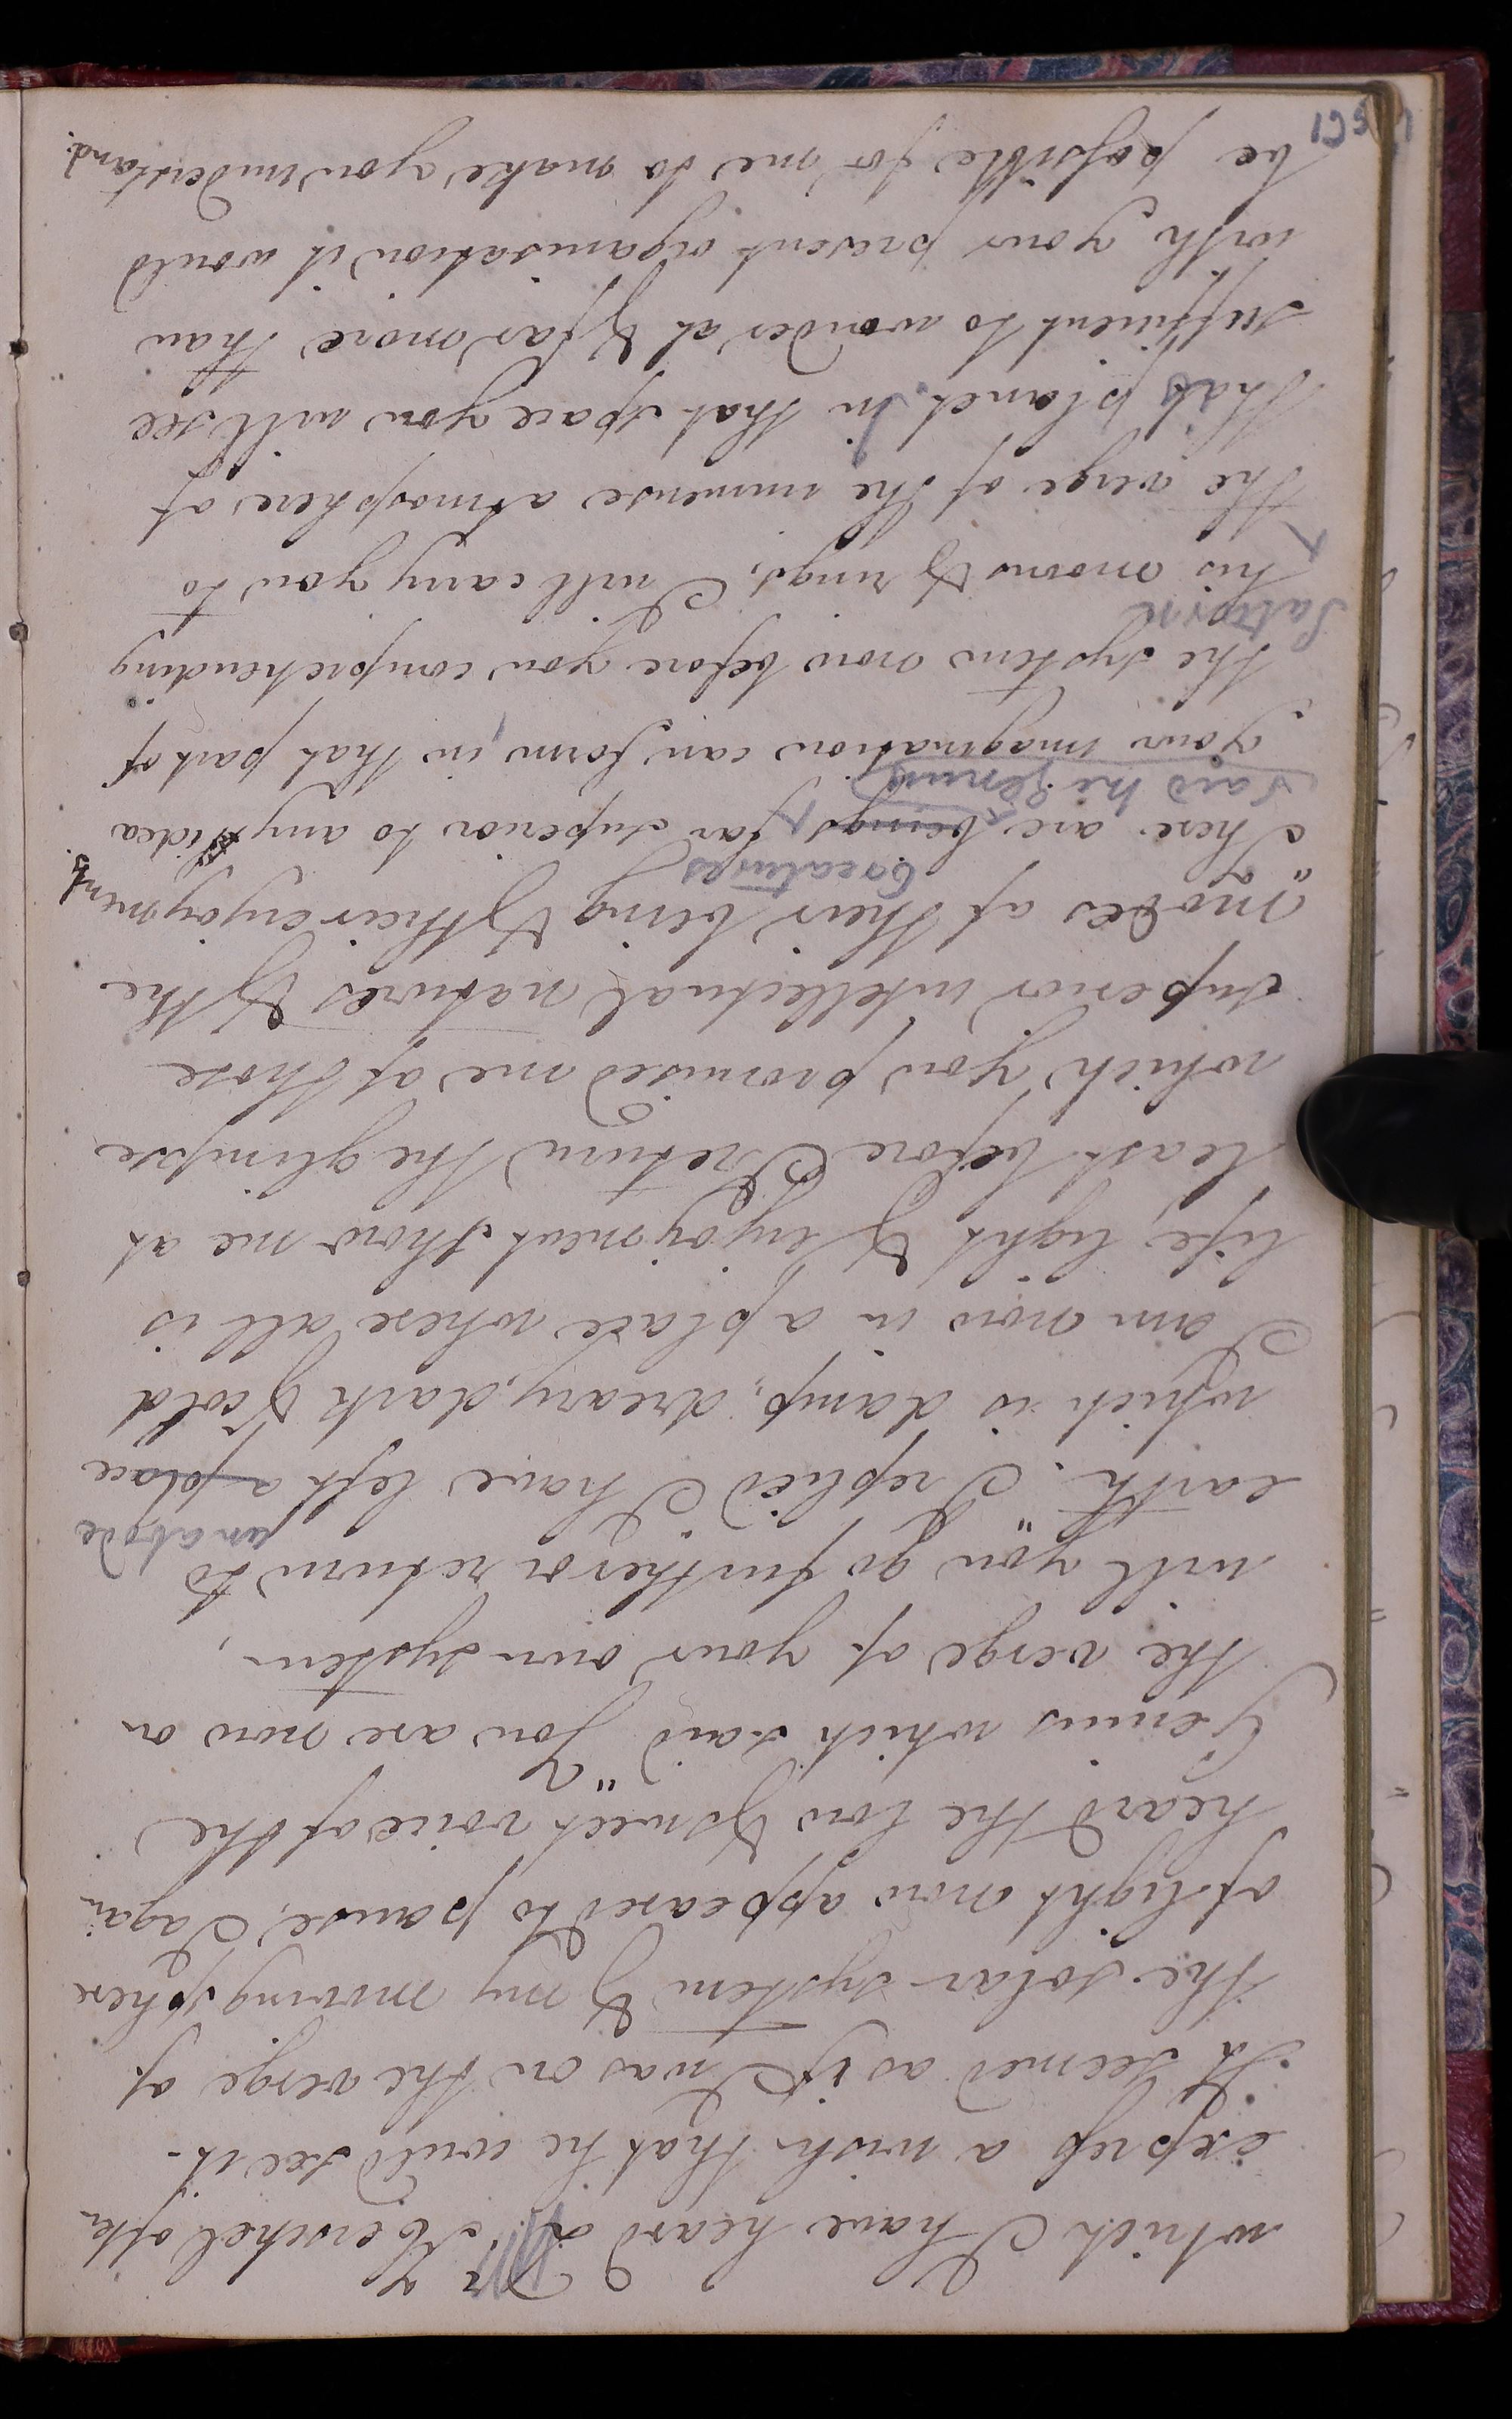 which I have heard Dr Herschel often
express a wish that he could see it -
It seemed as if I was on the verge of
the solar system & my moving sphere
of light now appeared to pause, I again
heard the low & sweet voice of the
Genius which said "You are now on
the verge of your own system,
will you go further or return to
an abode
earth." I replied I have left a place
which is damp, dreary, dark & cold
I am now in a place where all is
life, light & enjoyment. Show me at
least before I return the glimpse
which you promised me of those
superior intellectual natures & the
modes of their being & their enjoyments.
Creatures
"There are beings far superior to any idea
said the Genius
your imagination can form in that part of
the system now before you comprehending
Saturn
his moons & rings, I will carry you to
the verge of the immense atmosphere of
this planet. In that space you will see
sufficient to wonder at & far more than
with your present organisation it would
be possible for me to make you understand.
195